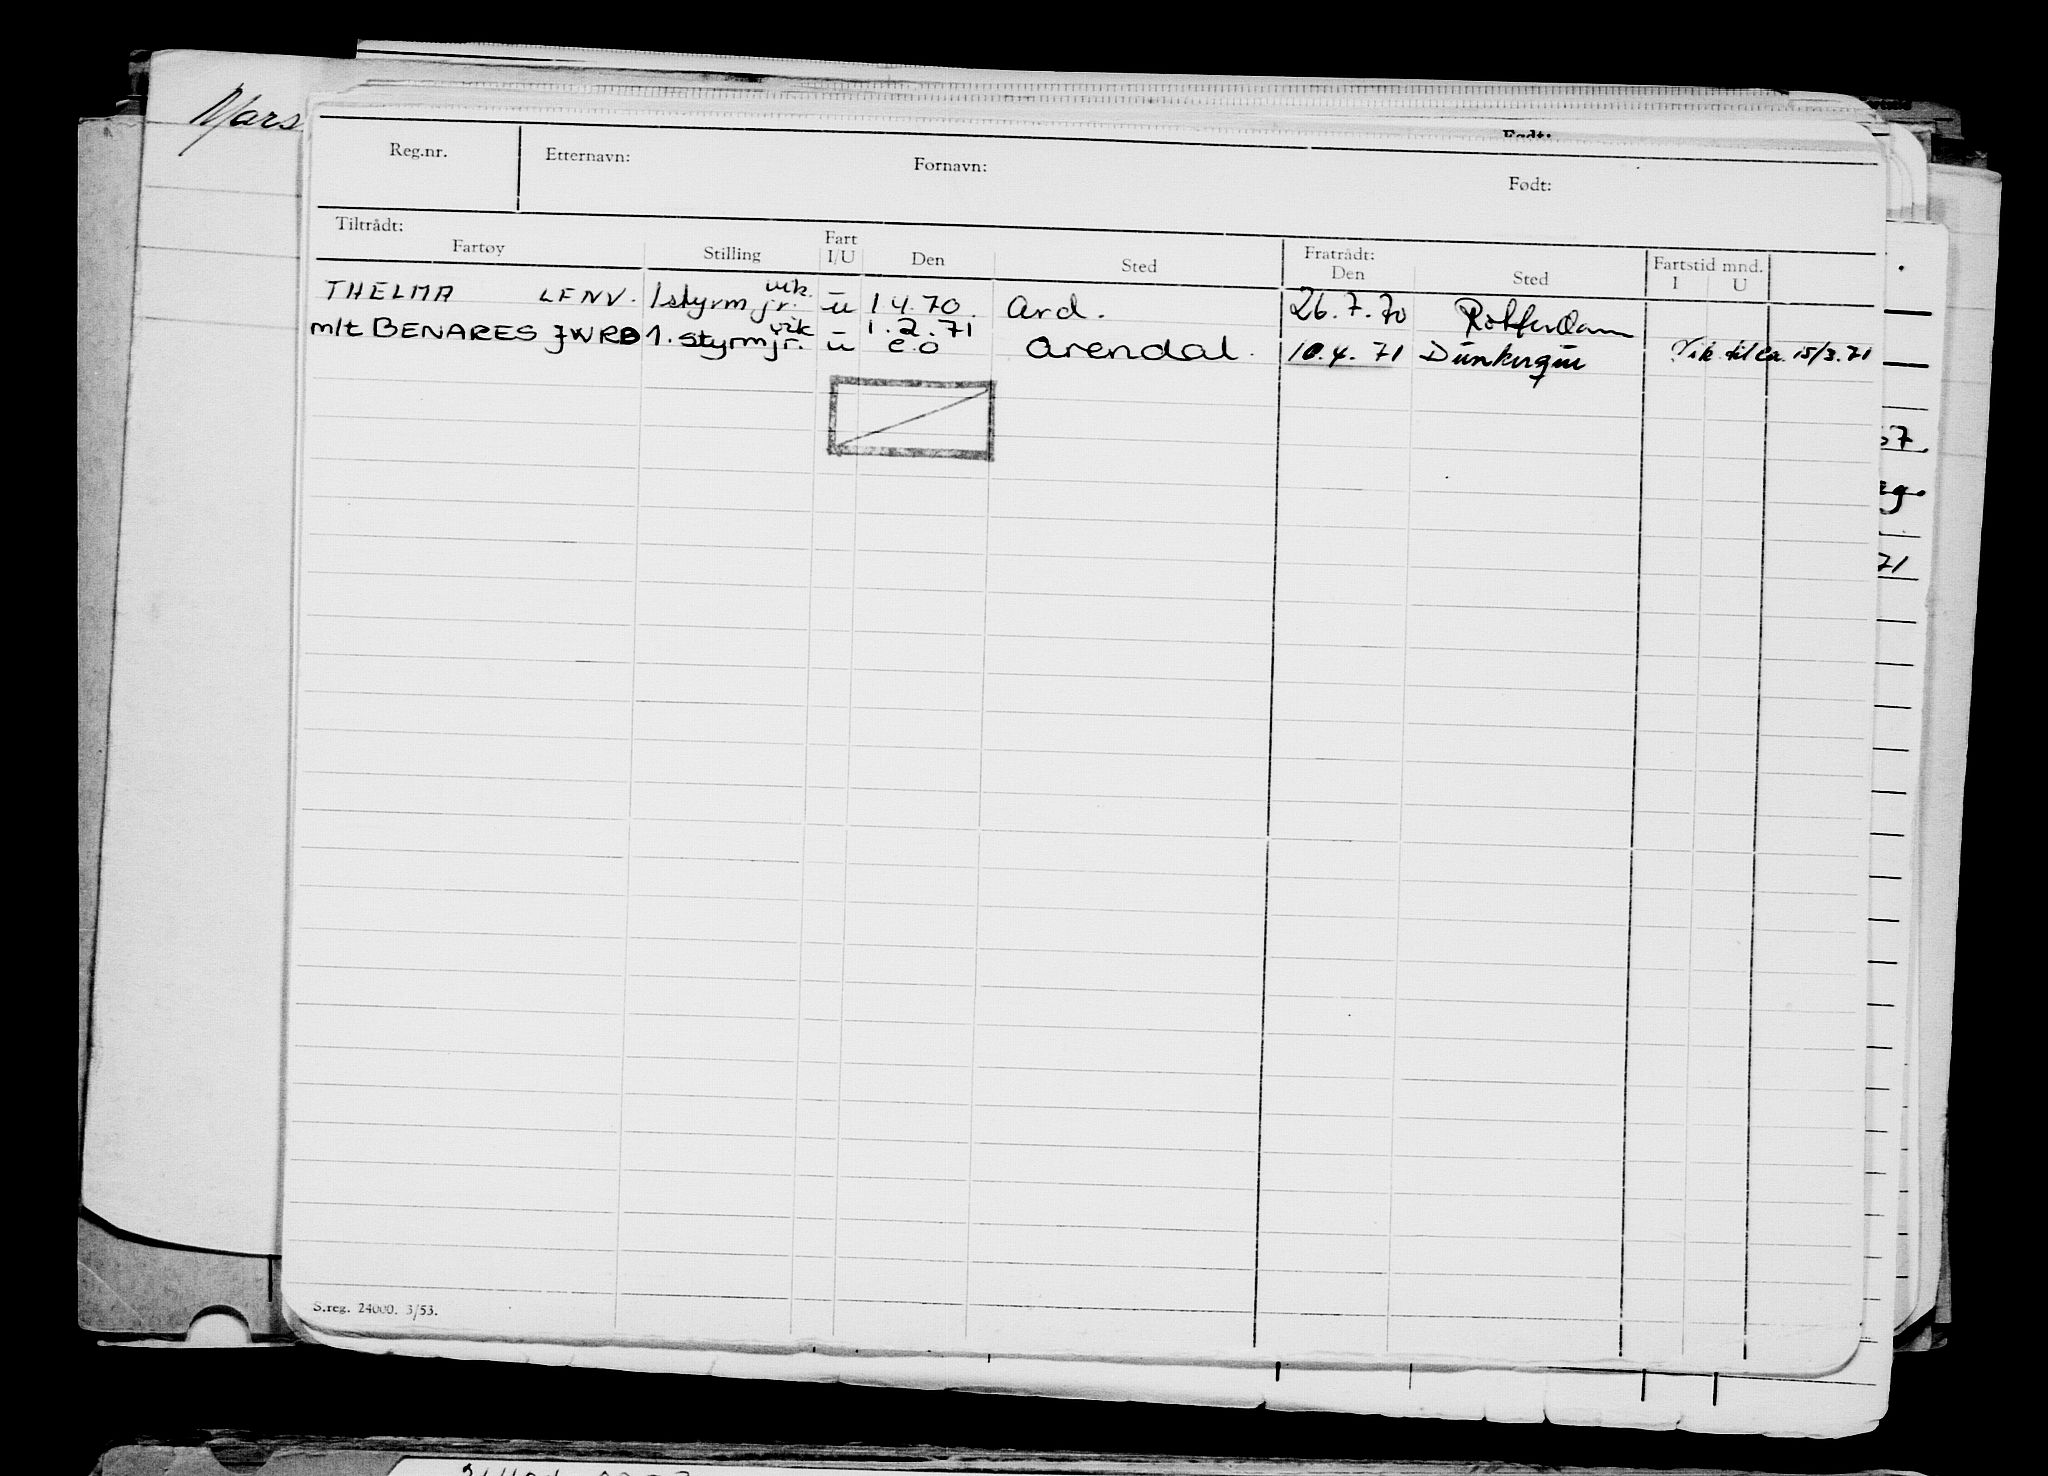 Mars
Født:
Reg.nr. Etternavn: Fornavn: Født:
Tiltrådt: Fratrådt:
Fartøy Stilling Fart I/U Den Sted Den Sted Fartstid mnd. I U
THELMA LFNV. 1styrm jr. vik. u 1 4.70. Ard. 26.7.70 Rotterdam
m/t BENARES JWRD 1. styrm jr. vik u 1.2.71 e.o Arendal. 10.4.71 Dunkerque Vik til ca. 15/3.71
67.
71
S.reg. 24000. 3/53.